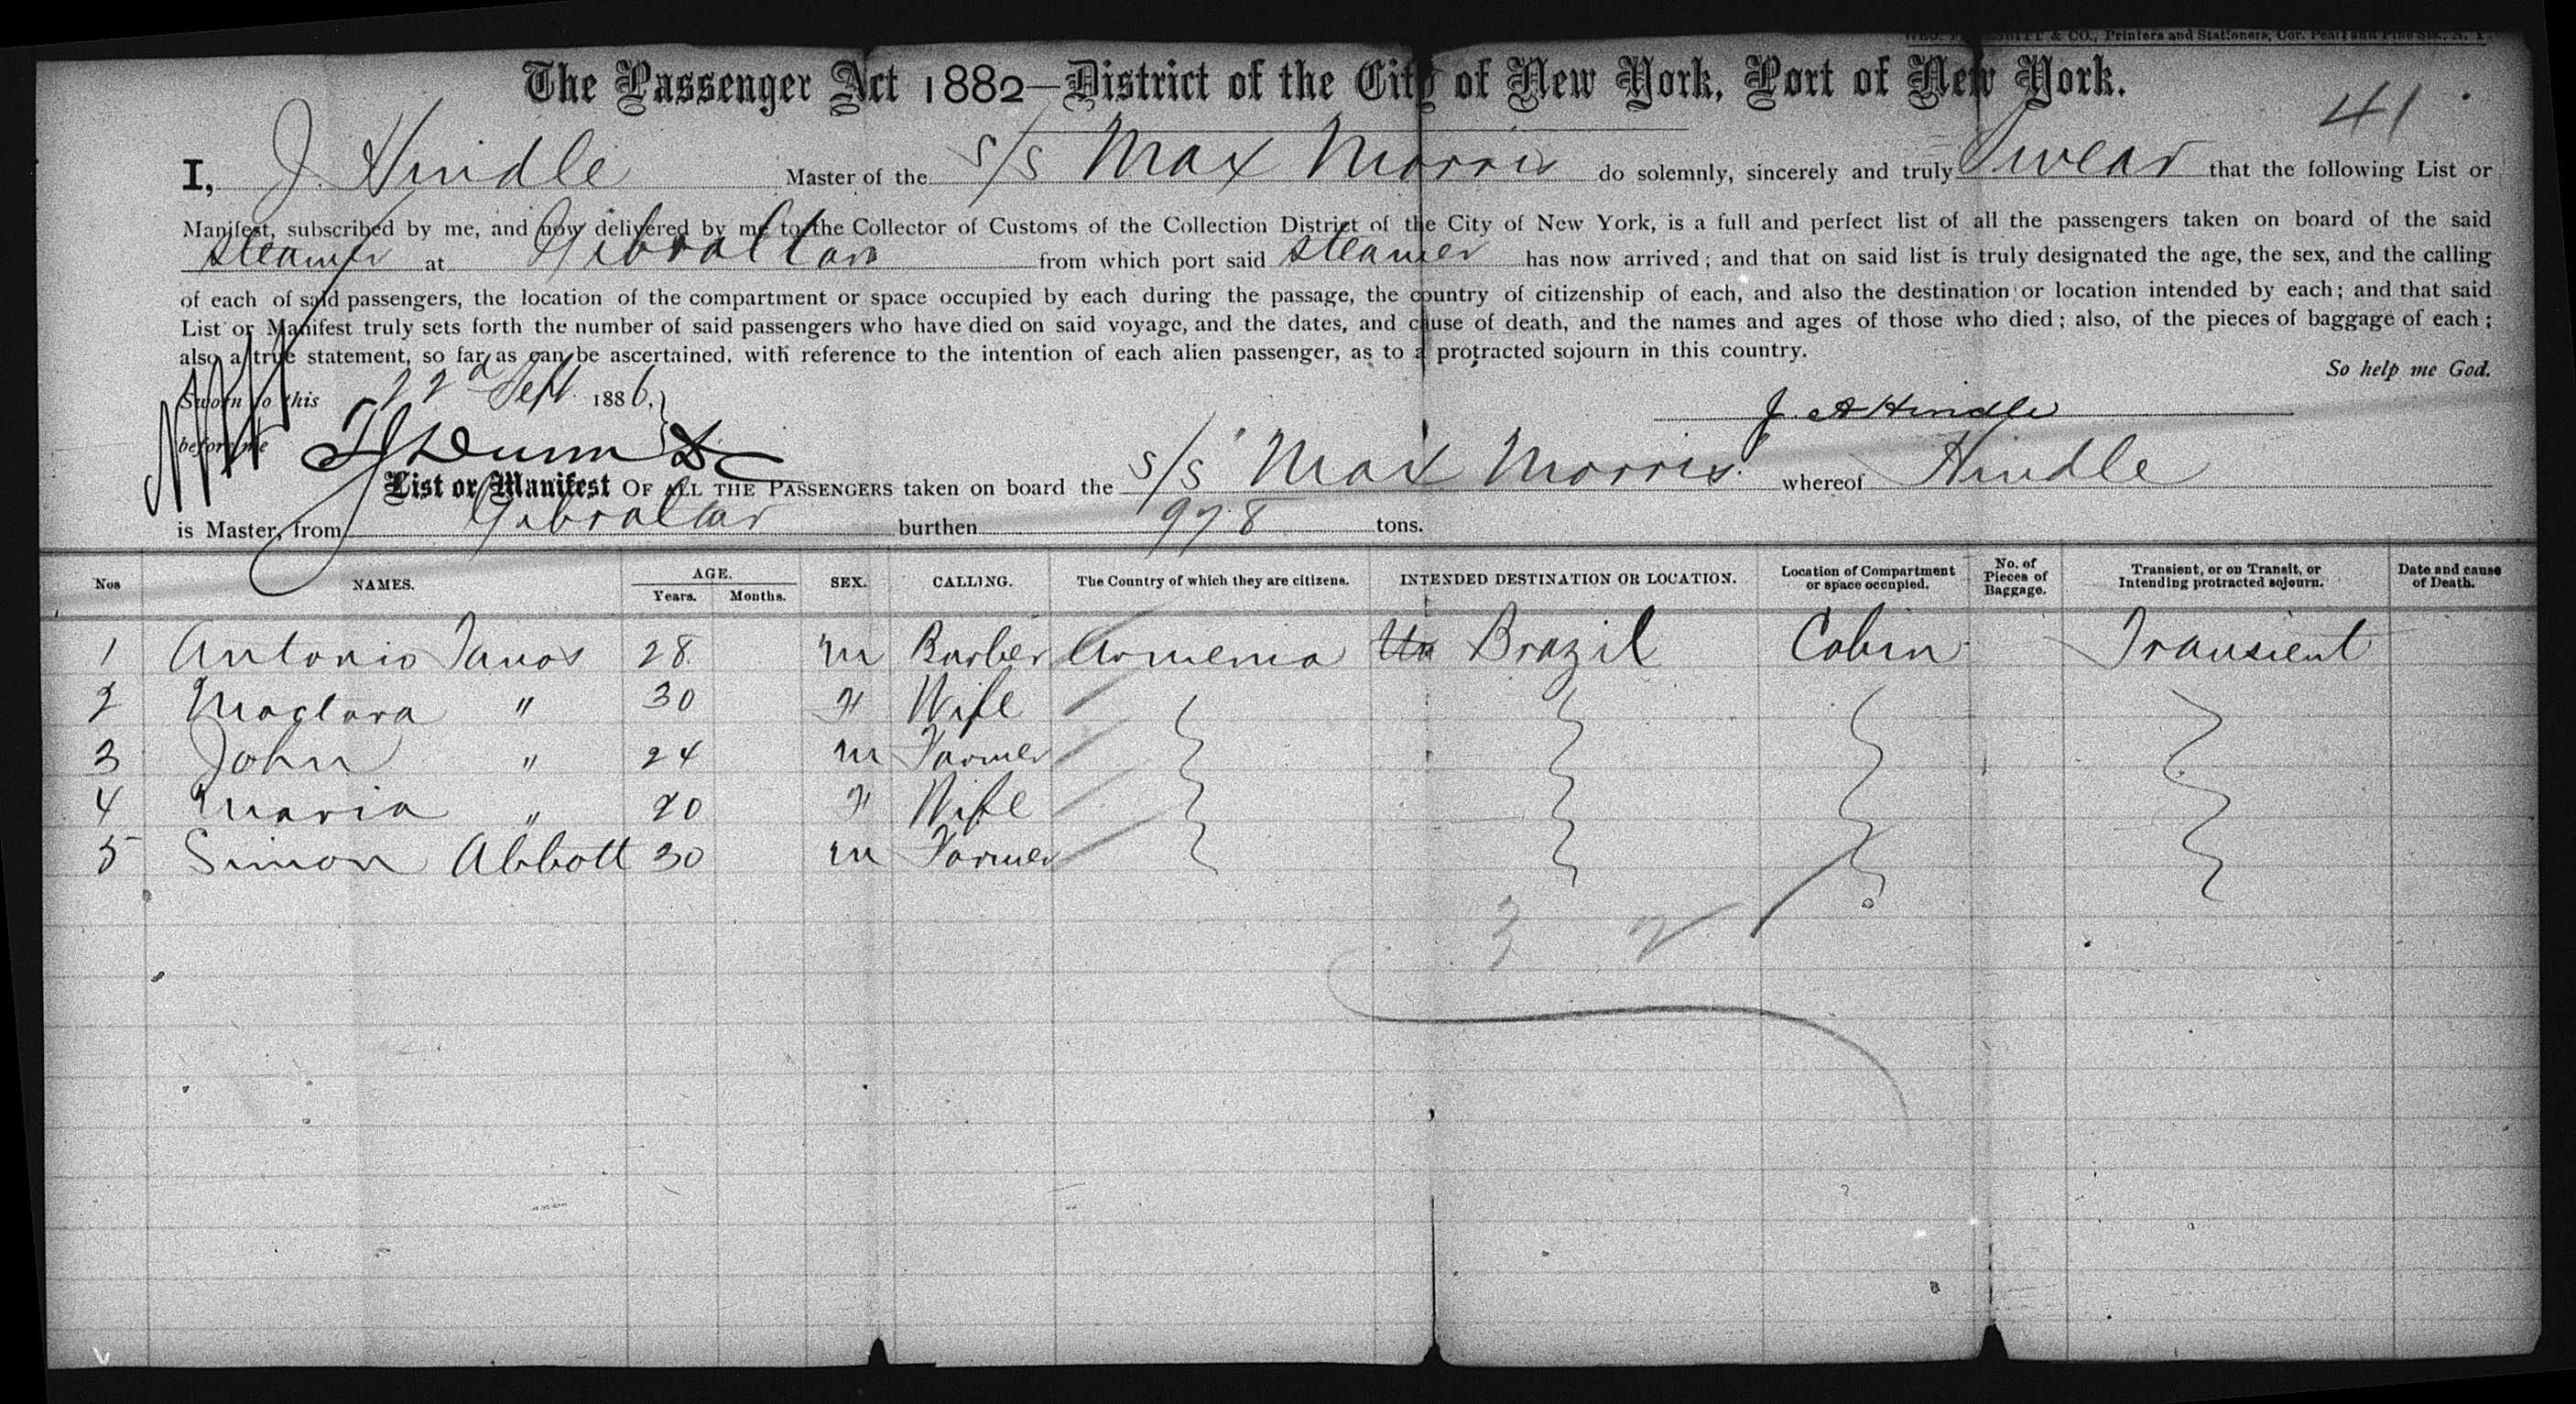 & CO., Printers and Stationers, Cor. Pearl and Pine Sts., N. Y.
The Passenger Act 1882—District of the City of New York, Port of New York.
41
I, J. Hindle Master of the s/s Max Morris do solemnly, sincerely and truly Swear that the following List or
Manifest, subscribed by me, and now delivered by me to the Collector of Customs of the Collection District of the City of New York, is a full and perfect list of all the passengers taken on board of the said
steamer at Gibraltar from which port said steamer has now arrived; and that on said list is truly designated the age, the sex, and the calling
of each of said passengers, the location of the compartment or space occupied by each during the passage, the country of citizenship of each, and also the destination or location intended by each; and that said
List or Manifest truly sets forth the number of said passengers who have died on said voyage, and the dates, and cause of death, and the names and ages of those who died; also, of the pieces of baggage of each;
also a true statement, so far as can be ascertained, with reference to the intention of each alien passenger, as to a protracted sojourn in this country.
So help me God.
Sworn to this 22d Sept 1886,
J. A Hindle
before me Dunn
List or Manifest OF ALL THE PASSENGERS taken on board the s/s "Max Morris" whereof Hindle
is Master, from Gibraltar burthen 978 tons.
Nos NAMES. AGE. Years. Months. SEX. CALLING. The Country of which they are citizens. INTENDED DESTINATION OR LOCATION. Location of Compartment or space occupied. No. of Pieces of Baggage. Transient, or on Transit, or Intending protracted sojourn. Date and cause of Death.
1 Antonio Tanos 28 m Barber Armenia Brazil Cabin Transient
2 Maclara " 30 f Wife
3 John " 24 m Farmer
4 Maria " 20 f Wife
5 Simon Abbott 30 m Farmer
3 2